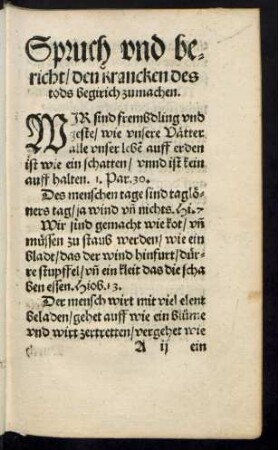 Spruch vnd be⸗
richt/ den krancken des
tods begirich zumachen.
WIR sind frembdling vnd
geste/ wie vnsere Vätter
alle vnser lebẽ auff erden
ist wie ein schatten/ vnnd ist kein
auff halten. 1. Par. 30.
Des menschen tage sind taglö⸗
ners tag/ ja wind vñ nichts. Hi. 7
Wir sind gemacht wie kot/ vñ
müssen zu staub werden/ wie ein
bladt/ das der wind hinfurt/ dür⸗
re stupffel/ vñ ein kleit das die scha
ben essen. Hiob. 13.
Der mensch wirt mit viel elent
beladen/ gehet auff wie ein blüme
vnd wirt zertretten/ vergehet wie
A ij ein